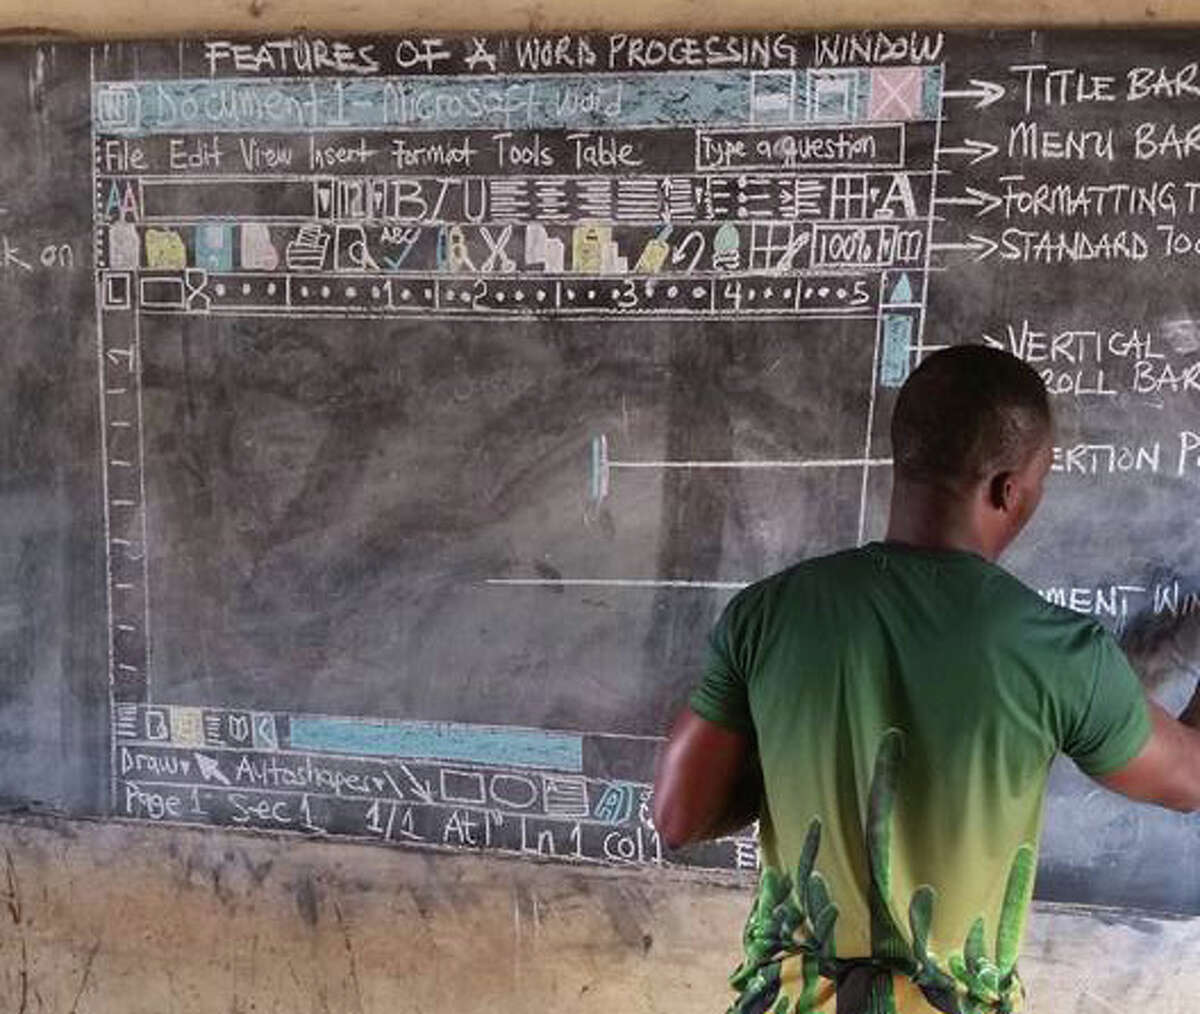 FEATURES OF A WORD PROCESSING WINDOW
W Document 1 - Microsoft Word
TITLE BAR
File Edit View Insert Format Tools Table Type a question
MENU BAR
AA B I U A
FORMATTING T
ABC 100%
STANDARD TO
k on
L 1 2 3 4 5
VERTICAL
ROLL BAR
1
ERTION P
2
UMENT WIN
Draw Autoshapes A
Page 1 Sec 1 1/1 At 1" Ln 1 Col 1